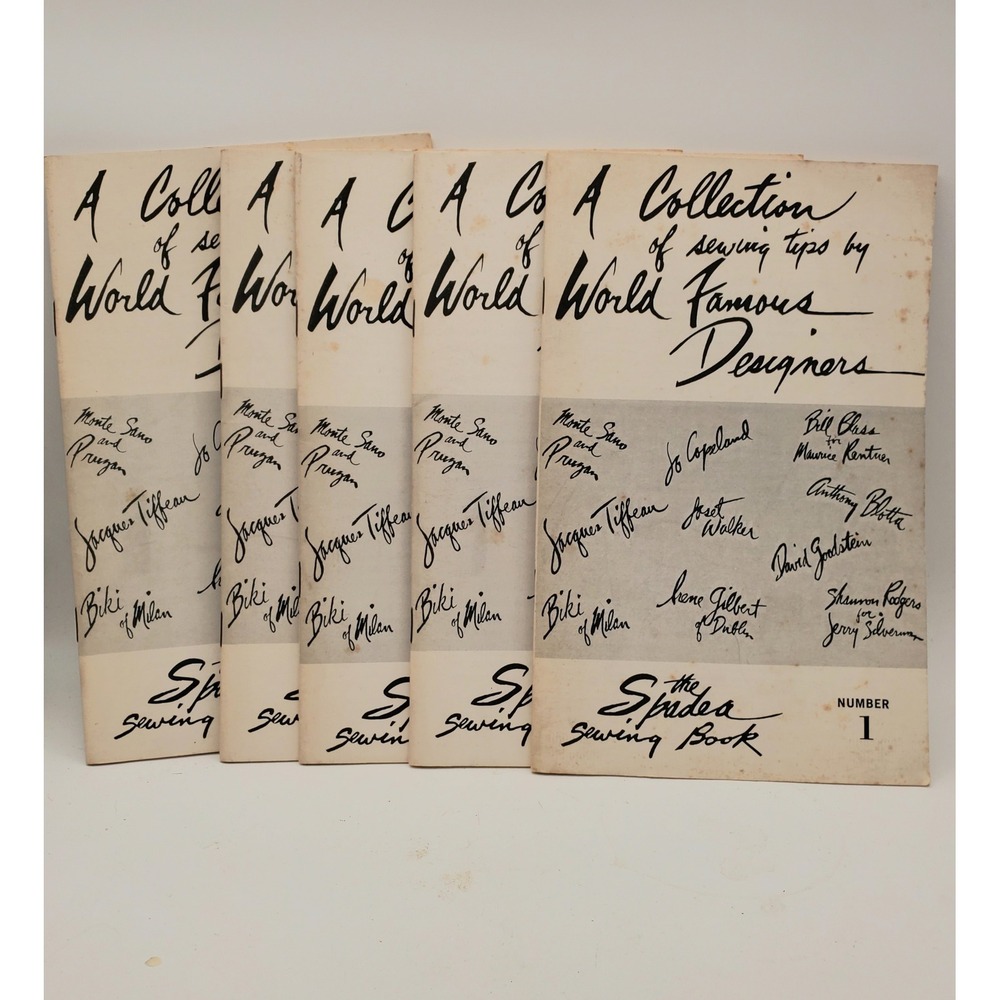 A Coll
of se
World F
Monte Sano
and
Pruzan
Jo C
Jacques Tiffeau
Biki
of Milan
Sp
sewing
A
Wor
Monte Sa
and
Pruzan
Jacques T
Biki
of Mil
S
sew
A C
of
World
Monte Sano
and
Pruzan
Jacques Tiffeau
Biki
of Milan
S
sewin
A Co
of
World
Monte Sano
and
Pruzan
Jacques Tiffeau
Biki
of Milan
Sp
sewing
A Collection
of sewing tips by
World Famous
Designers
Monte Sano
and
Pruzan
Jo Copeland
Bill Blass
for
Maurice Rentner
Jacques Tiffeau
Joset
Walker
Anthony Blotta
David Goodstein
Biki
of Milan
Irene Gilbert
of Dublin
Shannon Rodgers
for
Jerry Silverman
the
Spadea
sewing Book
NUMBER
1